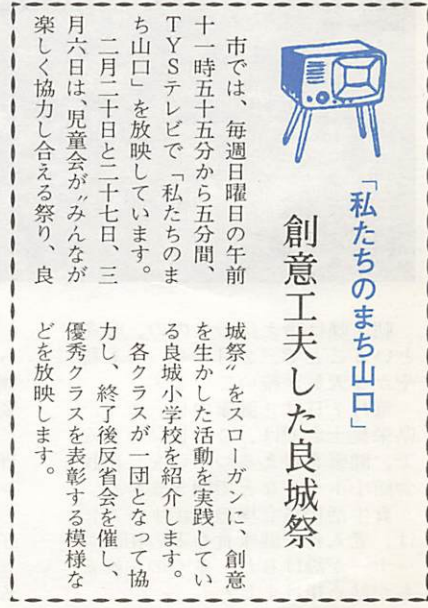 「私たちのまち山口」
創意工夫した良城祭
市では、毎週日曜日の午前
十一時五十五分から五分間、
TYSテレビで「私たちのま
ち山口」を放映しています。
二月二十日と二十七日、三
月六日は、児童会が〝みんなが
楽しく協力し合える祭り、良
城祭〟をスローガンに、創意
を生かした活動を実践してい
る良城小学校を紹介します。
各クラスが一団となって協
力し、終了後反省会を催し、
優秀クラスを表彰する模様な
どを放映します。